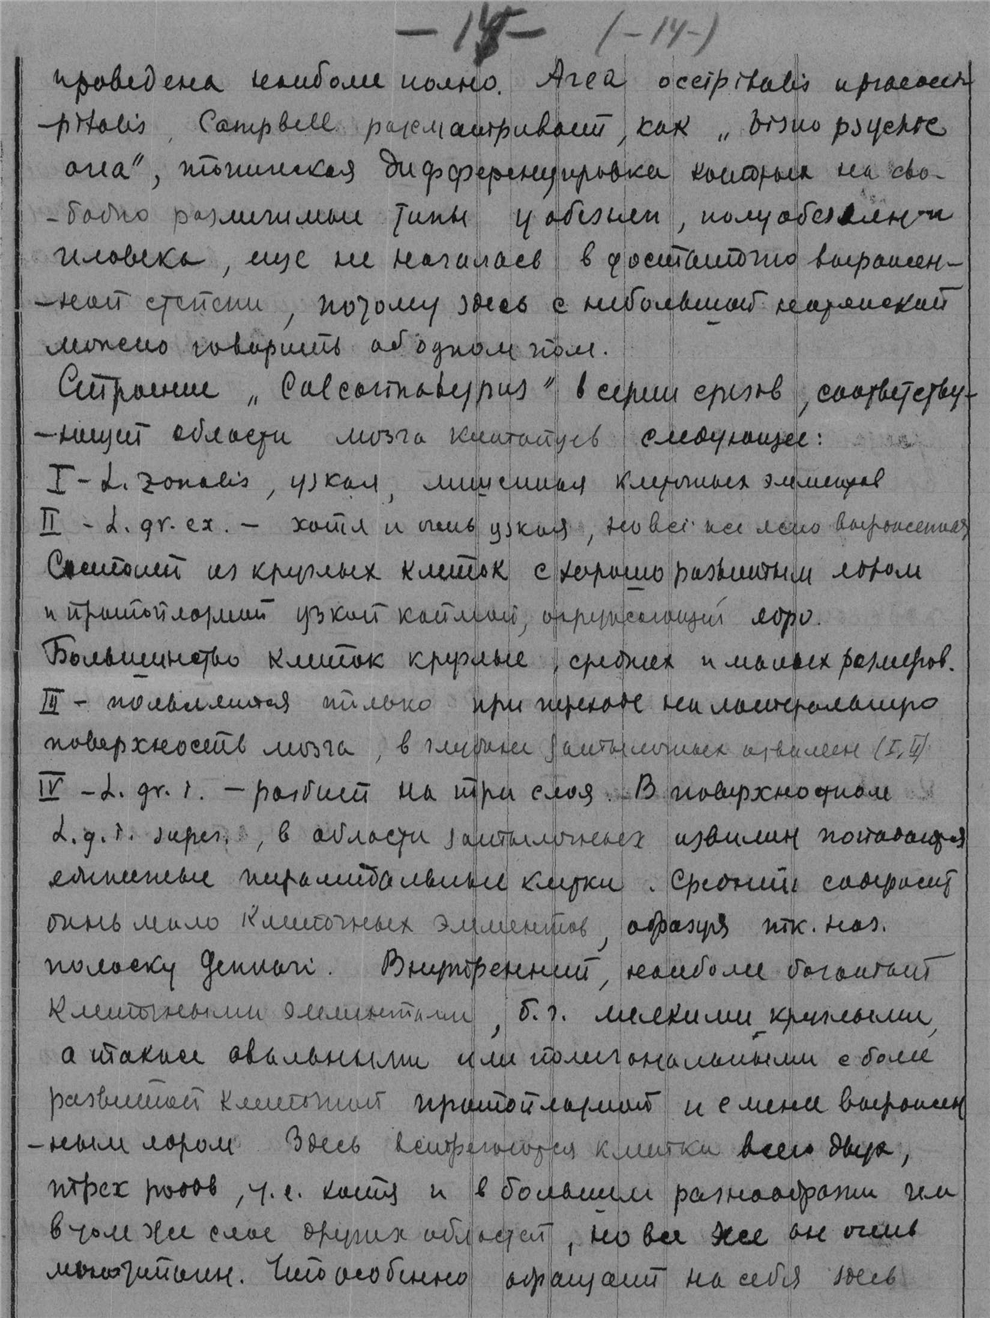 — 15 — (-14-)
проведена наиболее полно. Area occipitalis и praeocci-
-pitalis, Campbell рассматривает, как „visuo psychic
area“, типическая дифференцировка которых на сво-
-бодно различимые типы у обезьян, полуобезьян и
человека, еще не началась в достаточно выражен-
-ной степени, потому здесь с небольшой натяжкой
можно говорить об одном том.
Строение „Calcarinatypus“ в серии срезов, соответству-
-ющей области мозга китайцев следующее:
I – L. zonalis, узкая, лишенная клеточных элементов
II – L. gr. ex. – хотя и очень узкая, но все же ясно выраженная
Состоит из круглых клеток с хорошо развитым ядром
и протоплазмой узкой каймой, окружающей ядро.
Большинство клеток круглые, средних и малых размеров.
III – появляется только при переходе на латеральную
поверхность мозга, в глубине затылочных извилин (I, II)
IV – L. gr. i. – разбит на три слоя. В поверхностном
L. g. i. super., в области затылочных извилин попадаются
единичные пирамидальные клетки. Средний содержит
очень мало клеточных элементов, образуя так. наз.
полоску Gennari. Внутренний, наиболее богатый
клеточными элементами, б. ч. мелкими круглыми,
а также овальными или полигональными с более
развитой клеточной протоплазмой и менее выражен
-ным ядром Здесь встречаются клетки всего двух,
трех родов, т. е. хотя и в большем разнообразии чем
в том же слое других областей, но все же он очень
монотипен. Что особенно обращает на себя здесь